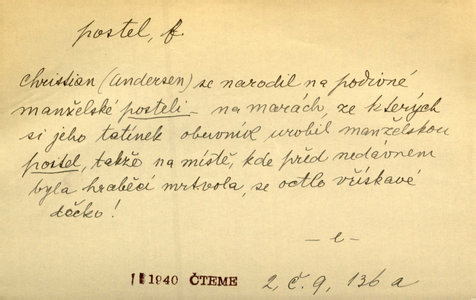 postel, f.
Christian (Andersen) se narodil na podivné
manželské posteli – na marách, ze kterých
si jeho tatínek obuvník urobil manželskou
postel, takže na místě, kde před nedávnem
byla hraběcí mrtvola, se octlo vřískavé
děcko!
– e –
1940 ČTEME 2, č. 9, 136 a